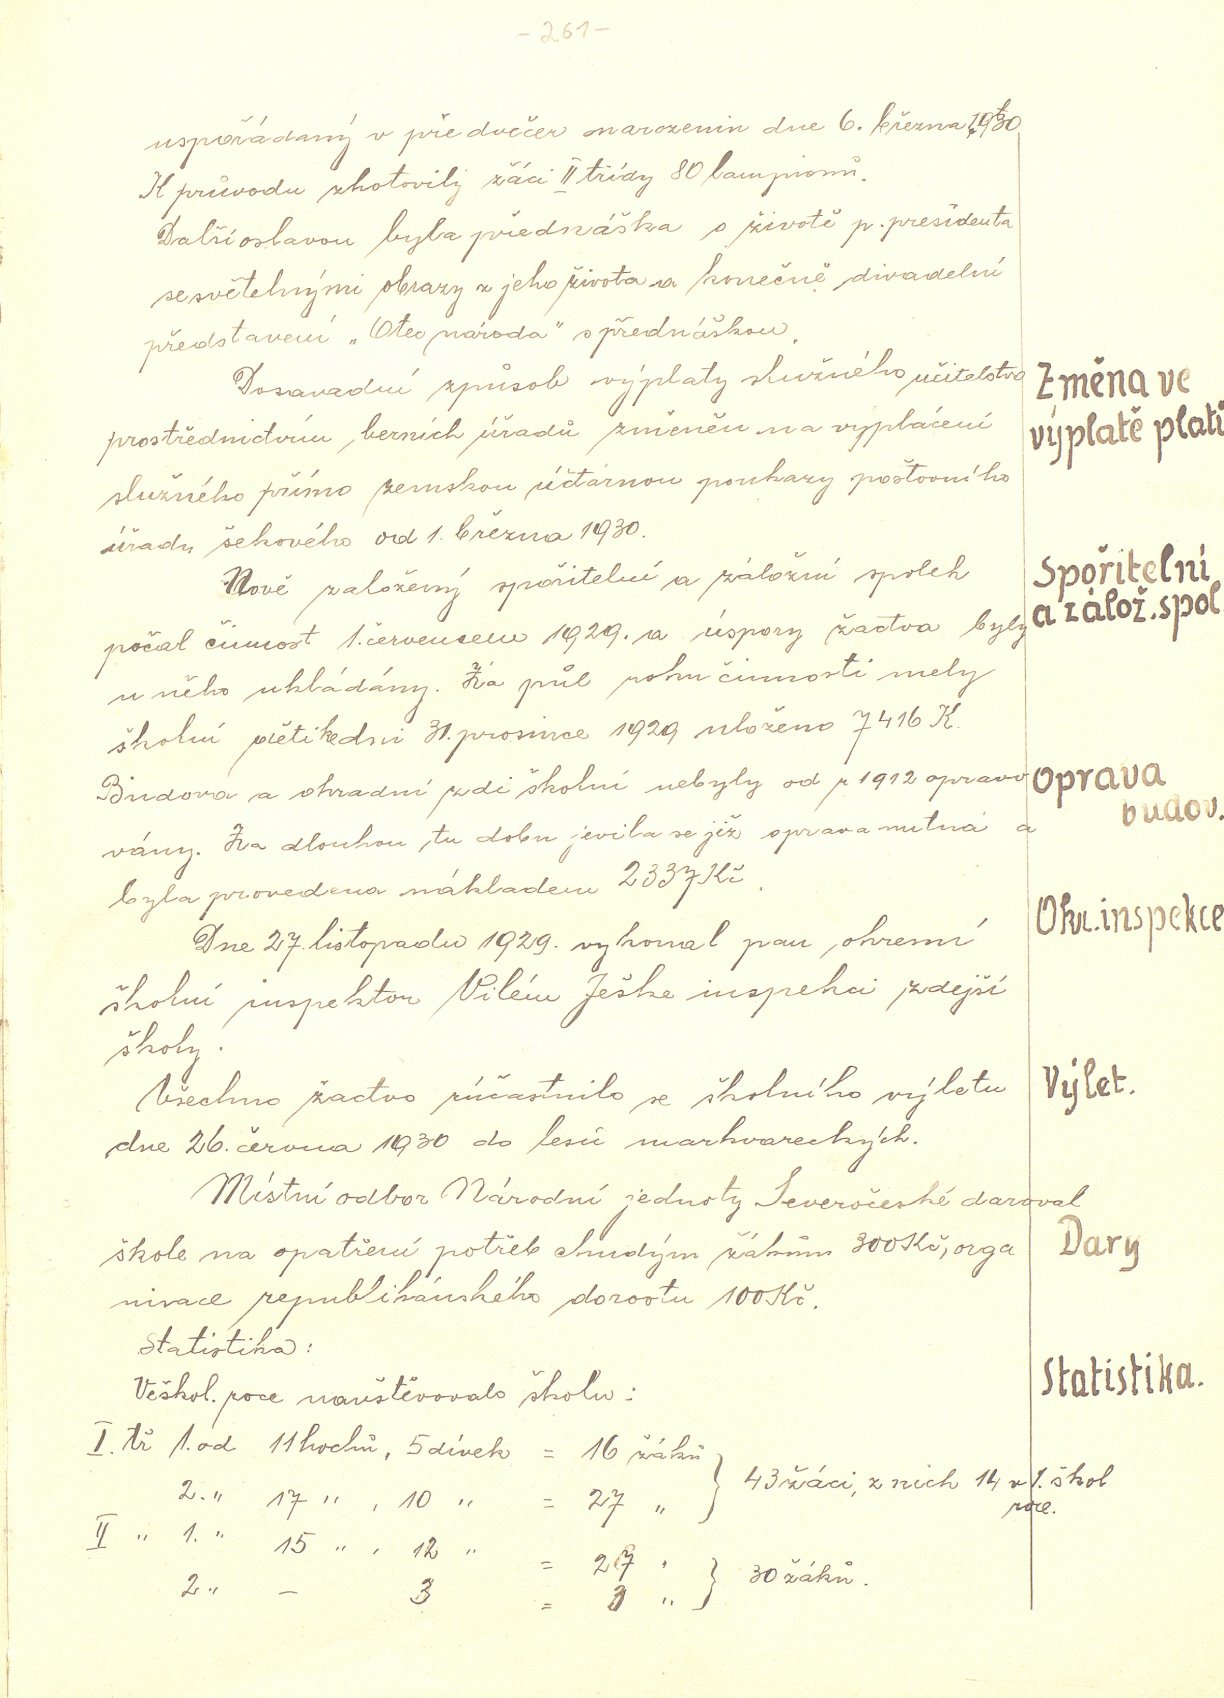 - 261 -
uspořádaný v předvečer narozenin dne 6. března 1930
K průvodu zhotovily žáci II třídy 80 lampionů.
Další oslavou byla přednáška o životě p. presidenta
se světelnými obrazy z jeho života a konečně divadelní
představení „Otec národa" s přednáškou.
Dosavadní způsob výplaty služného učitelstva
Změna ve
prostřednictvím berních úřadů změněn na vyplácení
výplatě platů
služného přímo zemskou účtárnou poukazy poštovního
úřadu šekového od 1. března 1930.
Nově založený spořitelní a záložní spolek
Spořitelní
počal činnost 1. červencem 1929. a úspory žactva byly
a zálož. spol
u něho ukládány. Za půl roku činnosti mely
školní dětikedni 31. prosince 1929 uloženo 7416 K.
Budova a ohradní zdi školní nebyly od r 1912 opravo
Oprava
budov.
vány. Za dlouhou tu dobu jevila se již oprava nutná a
byla provedena nákladem 2337 Kč.
Okr. inspekce
Dne 27. listopadu 1929. vykonal pan okresní
školní inspektor Vilém Ješke inspekci zdejší
školy.
Všechno žactvo zúčastnilo se školního výletu
Výlet.
dne 26. června 1930 do lesů markvareckých.
Místní odbor Národní jednoty Severočeské daroval
škole na opatření potřeb chudým žákům 300 Kč, orga
Dary
nisace republikánského dorostu 100 Kč.
Statistika:
Statistika.
Ve škol. roce navštěvovalo školu:
I. tř 1. od 11 hochů, 5 dívek = 16 žáků
2. „ 17 „ , 10 „ = 27 „ } 43 žáci, z nich 14 v 1. škol
roce.
II „ 1. „ 15 „ , 12 „ = 27 „
2 „ – 3 = 3 „ } 30 žáků.